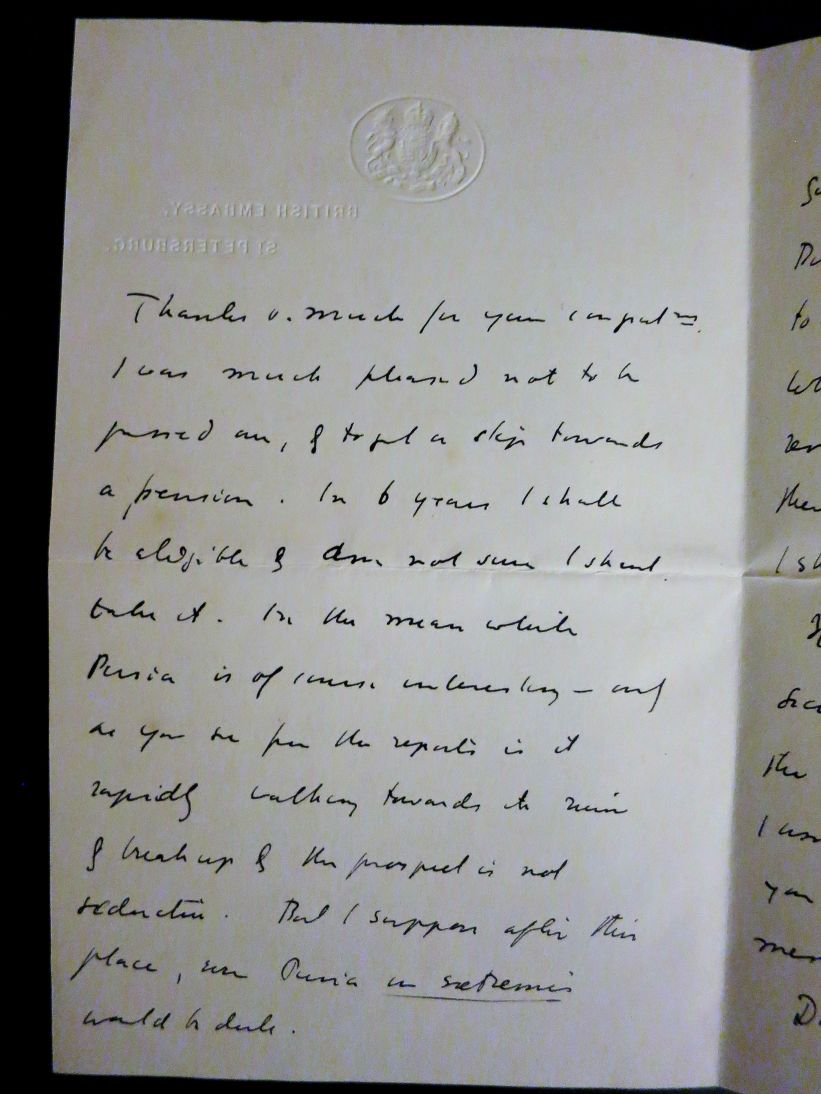 BRITISH EMBASSY,
ST PETERSBURG.
Thanks v. much for your congratns.
I was much pleased not to be
passed over, & to get a step towards
a pension. In 6 years I shall
be eligible & am not sure I shant
take it. In the mean while
Persia is of course interesting – only
as you see from the reports is it
rapidly walking towards its ruin
& break up & the prospect is not
seductive. But I suppose after this
place, even Persia in extremis
would be dull.
to
I sh
you